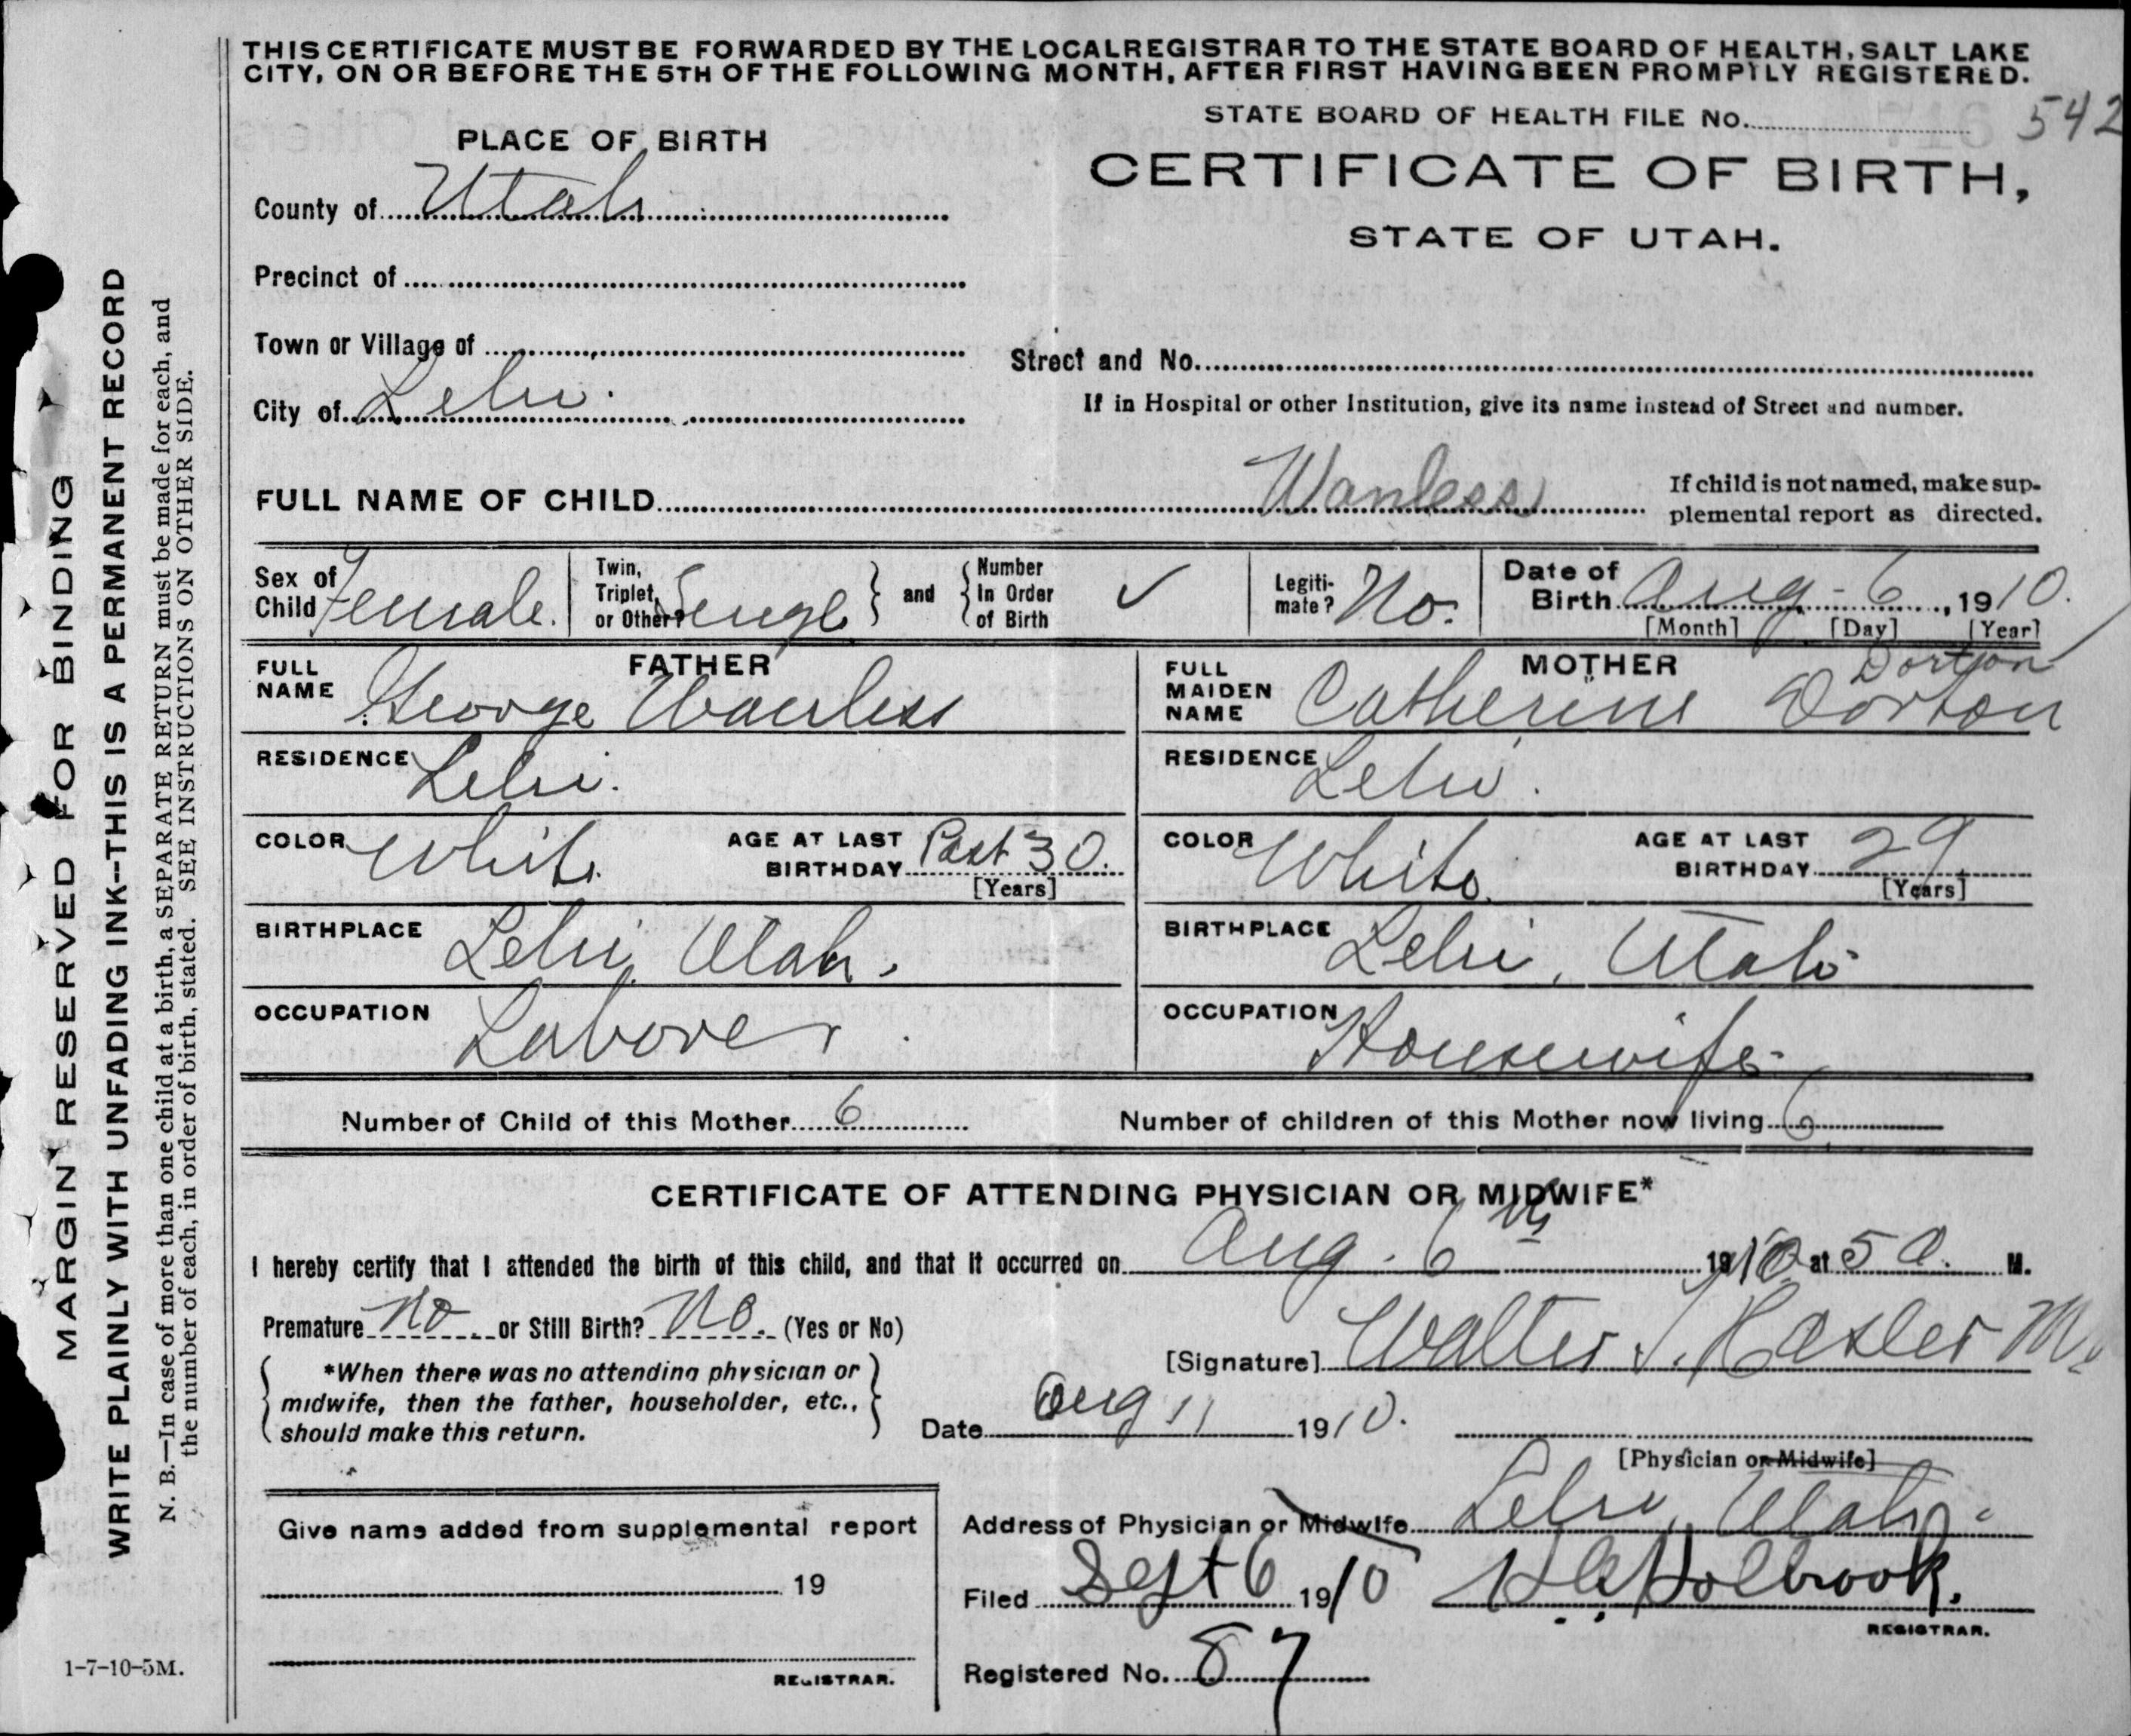 THIS CERTIFICATE MUST BE FORWARDED BY THE LOCAL REGISTRAR TO THE STATE BOARD OF HEALTH, SALT LAKE
CITY, ON OR BEFORE THE 5TH OF THE FOLLOWING MONTH, AFTER FIRST HAVING BEEN PROMPTLY REGISTERED.
STATE BOARD OF HEALTH FILE No. 542
PLACE OF BIRTH
CERTIFICATE OF BIRTH,
STATE OF UTAH.
County of Utah
Precinct of
Town or Village of
Street and No.
City of Lehi.
If in Hospital or other Institution, give its name instead of Street and number.
FULL NAME OF CHILD Wanless
If child is not named, make sup-
plemental report as directed.
Sex of Child Female.
Twin, Triplet, or Other? Single
and
Number In Order of Birth ✓
Legiti-mate? No.
Date of Birth Aug - 6, 1910.
[Month] [Day] [Year]
FATHER
FULL NAME George Wanless
RESIDENCE Lehi.
COLOR White
AGE AT LAST BIRTHDAY Past 30.
[Years]
BIRTHPLACE Lehi, Utah.
OCCUPATION Laborer.
MOTHER
Dorton
FULL MAIDEN NAME Catherine Dorton
RESIDENCE Lehi.
COLOR White
AGE AT LAST BIRTHDAY 29
[Years]
BIRTHPLACE Lehi, Utah
OCCUPATION Housewife
Number of Child of this Mother 6
Number of children of this Mother now living 6
CERTIFICATE OF ATTENDING PHYSICIAN OR MIDWIFE*
I hereby certify that I attended the birth of this child, and that it occurred on Aug. 6th 1910 at 5 a. M.
Premature No or Still Birth? No. (Yes or No)
[Signature] Walter Hasler M
*When there was no attending physician or
midwife, then the father, householder, etc.,
should make this return.
Date Aug 11 1910.
[Physician or Midwife]
Address of Physician or Midwife Lehi, Utah
Give name added from supplemental report
19
REGISTRAR.
Filed Sept 6 1910 Holbrook.
REGISTRAR.
Registered No. 87
1-7-10-5M.
MARGIN RESERVED FOR BINDING
WRITE PLAINLY WITH UNFADING INK--THIS IS A PERMANENT RECORD
N. B.—In case of more than one child at a birth, a SEPARATE RETURN must be made for each, and
the number of each, in order of birth, stated. SEE INSTRUCTIONS ON OTHER SIDE.